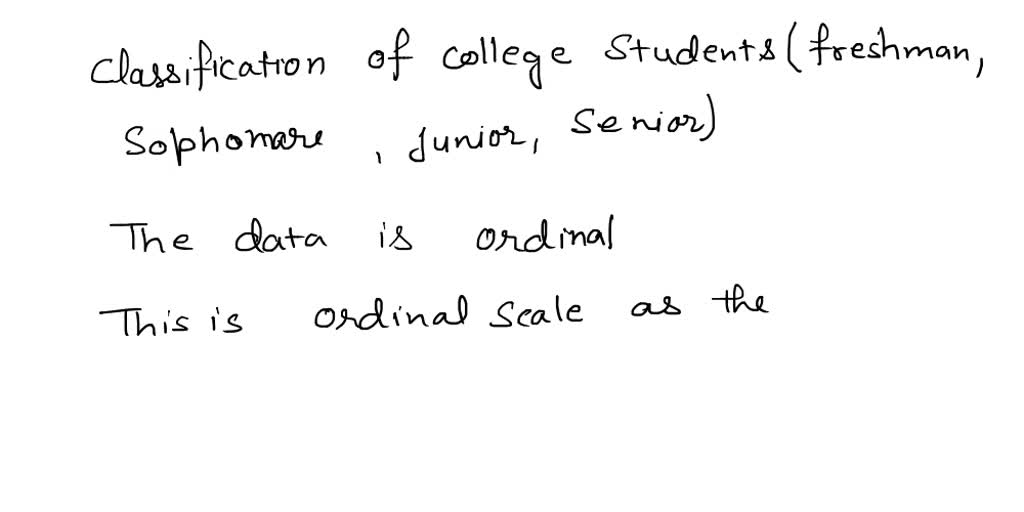 Classification of college Students (freshman,
Sophomare, Junior, Senior)
The data is ordinal
This is ordinal Scale as the